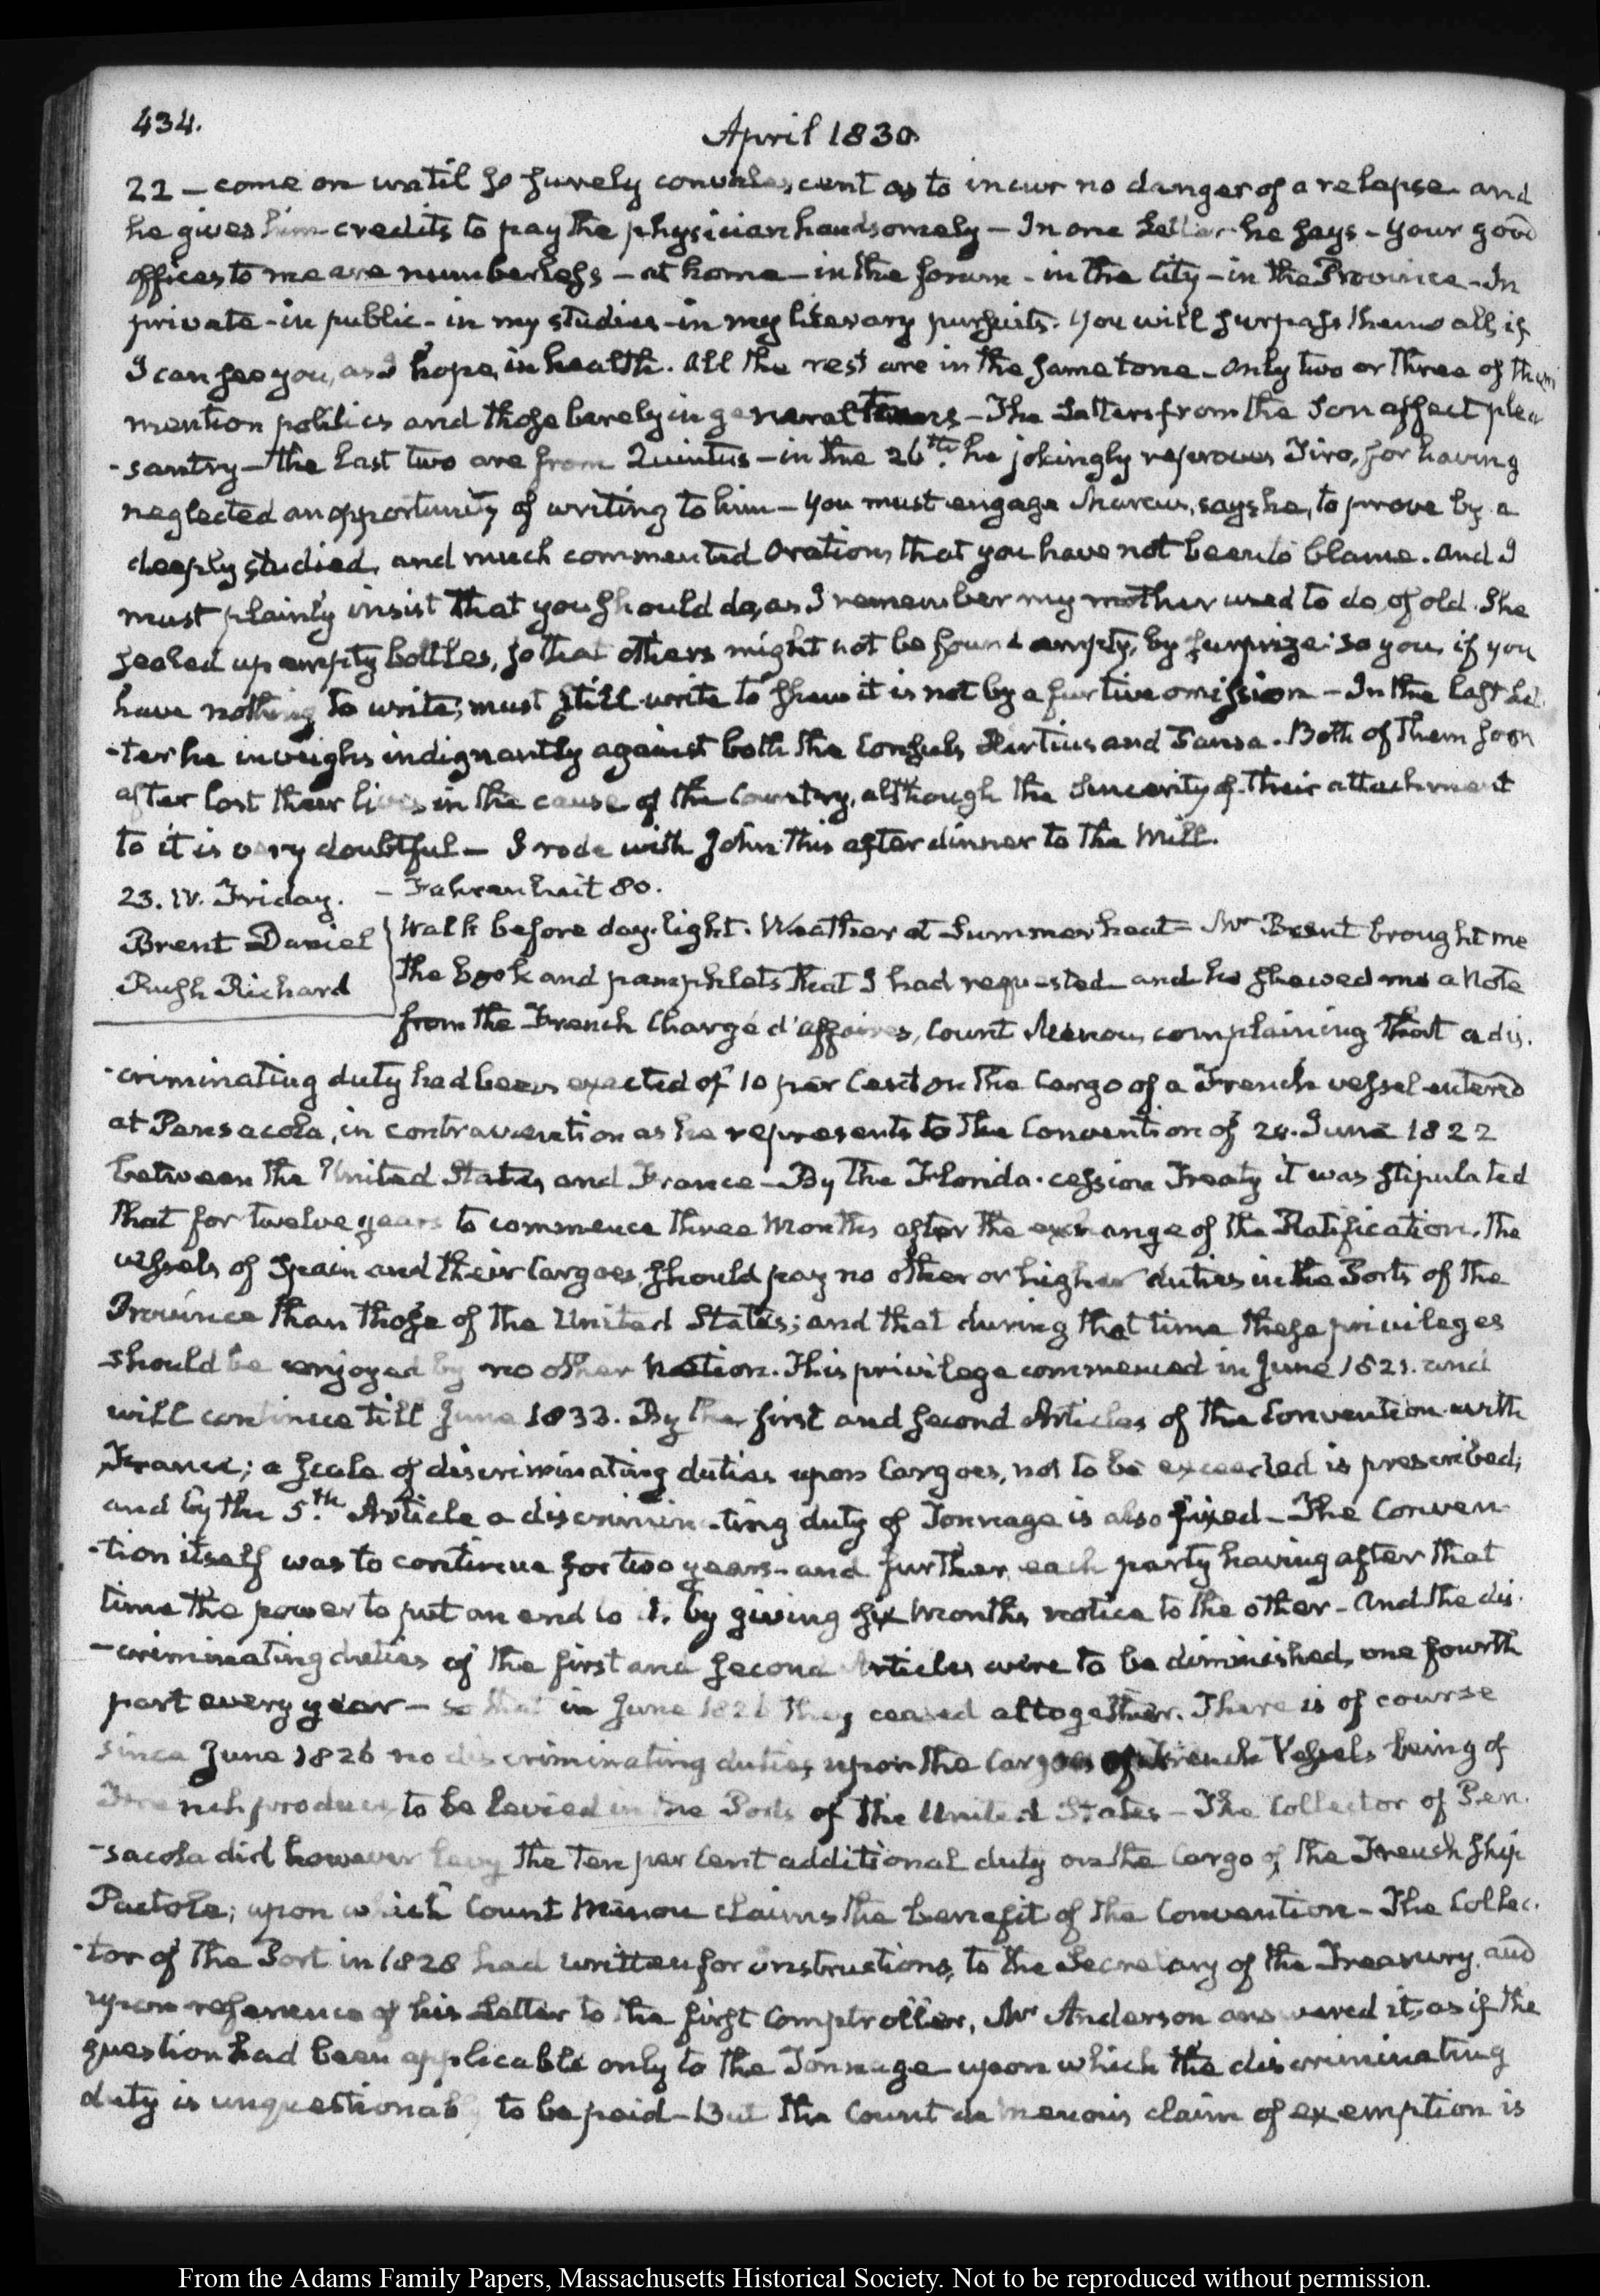 434.
April 1830.
22 – come on until so surely convalescent as to incur no danger of a relapse and
he gives him credits to pay the physician handsomely – In one Letter he says – Your good
offices to me are numberless – at home – in the forum – in the City – in the Province – In
private – in public – in my studies – in my literary pursuits. You will surpass them all, if
I can see you, as I hope, in health. All the rest are in the same tone – Only two or three of them
mention politics and those barely in general terms – The Letters from the Son affect plea
-santry – the last two are from Quintus – in the 26th. he jokingly reproves Tiro, for having
neglected an opportunity of writing to him – You must engage Marcus, says he, to prove by a
deeply studied, and much commented Oration, that you have not been to blame. And I
must plainly insist that you should do, as I remember my mother used to do, of old. She
sealed up empty bottles, so that others might not be found empty, by surprize: so you, if you
have nothing to write, must still write to shew it is not by a furtive omission – In the last Let
-ter he inveighs indignantly against both the Consuls Hirtius and Pansa. Both of them soon
after lost their lives in the cause of the Country, although the sincerity of their attachment
to it is very doubtful – I rode with John this after dinner to the Mill.
23. IV. Friday. – Fahrenheit 80.
Brent Daniel
Rush Richard
Walk before day-light. Weather at Summer heat – Mr Brent brought me
the book and pamphlets that I had requested and he shewed me a Note
from the French Chargé d'affaires, Count Menou, complaining that a dis.
-criminating duty had been exacted of 10 per Cent on the Cargo of a French vessel entered
at Pensacola, in contravention as he represents to the Convention of 24. June 1822
between the United States, and France – By the Florida-cession Treaty it was stipulated
that for twelve years to commence three Months after the exchange of the Ratification, the
vessels of Spain and their Cargoes, should pay no other or higher duties in the Ports of the
Province than those of the United States; and that during that time these privileges
should be enjoyed by no other Nation. This privilege commenced in June 1821. and
will continue till June 1833. By the first and second Articles of the Convention with
France; a scale of discriminating duties upon Cargoes, not to be exceeded is prescribed;
and by the 5th. Article a discriminating duty of Tonnage is also fixed – The Conven
-tion itself was to continue for two years – and further, each party having after that
time the power to put an end to it, by giving six Months notice to the other – And the dis.
-criminating duties of the first and second Articles were to be diminished, one fourth
part every year – so that in June 1826 they ceased altogether. There is of course
since June 1826 no discriminating duties upon the Cargoes of French Vessels being of
French produce, to be levied in the Ports of the United States – The Collector of Pen.
-sacola did however levy the ten per Cent additional duty on the Cargo of the French Ship
Pactole; upon which Count Menou claims the benefit of the Convention – The Collec.
-tor of the Port in 1828 had written for instructions, to the Secretary of the Treasury, and
upon reference of his Letter to the first Comptroller, Mr Anderson answered it, as if the
question had been applicable only to the Tonnage upon which the discriminating
duty is unquestionably to be paid – But the Count de Menou's claim of exemption is
From the Adams Family Papers, Massachusetts Historical Society. Not to be reproduced without permission.